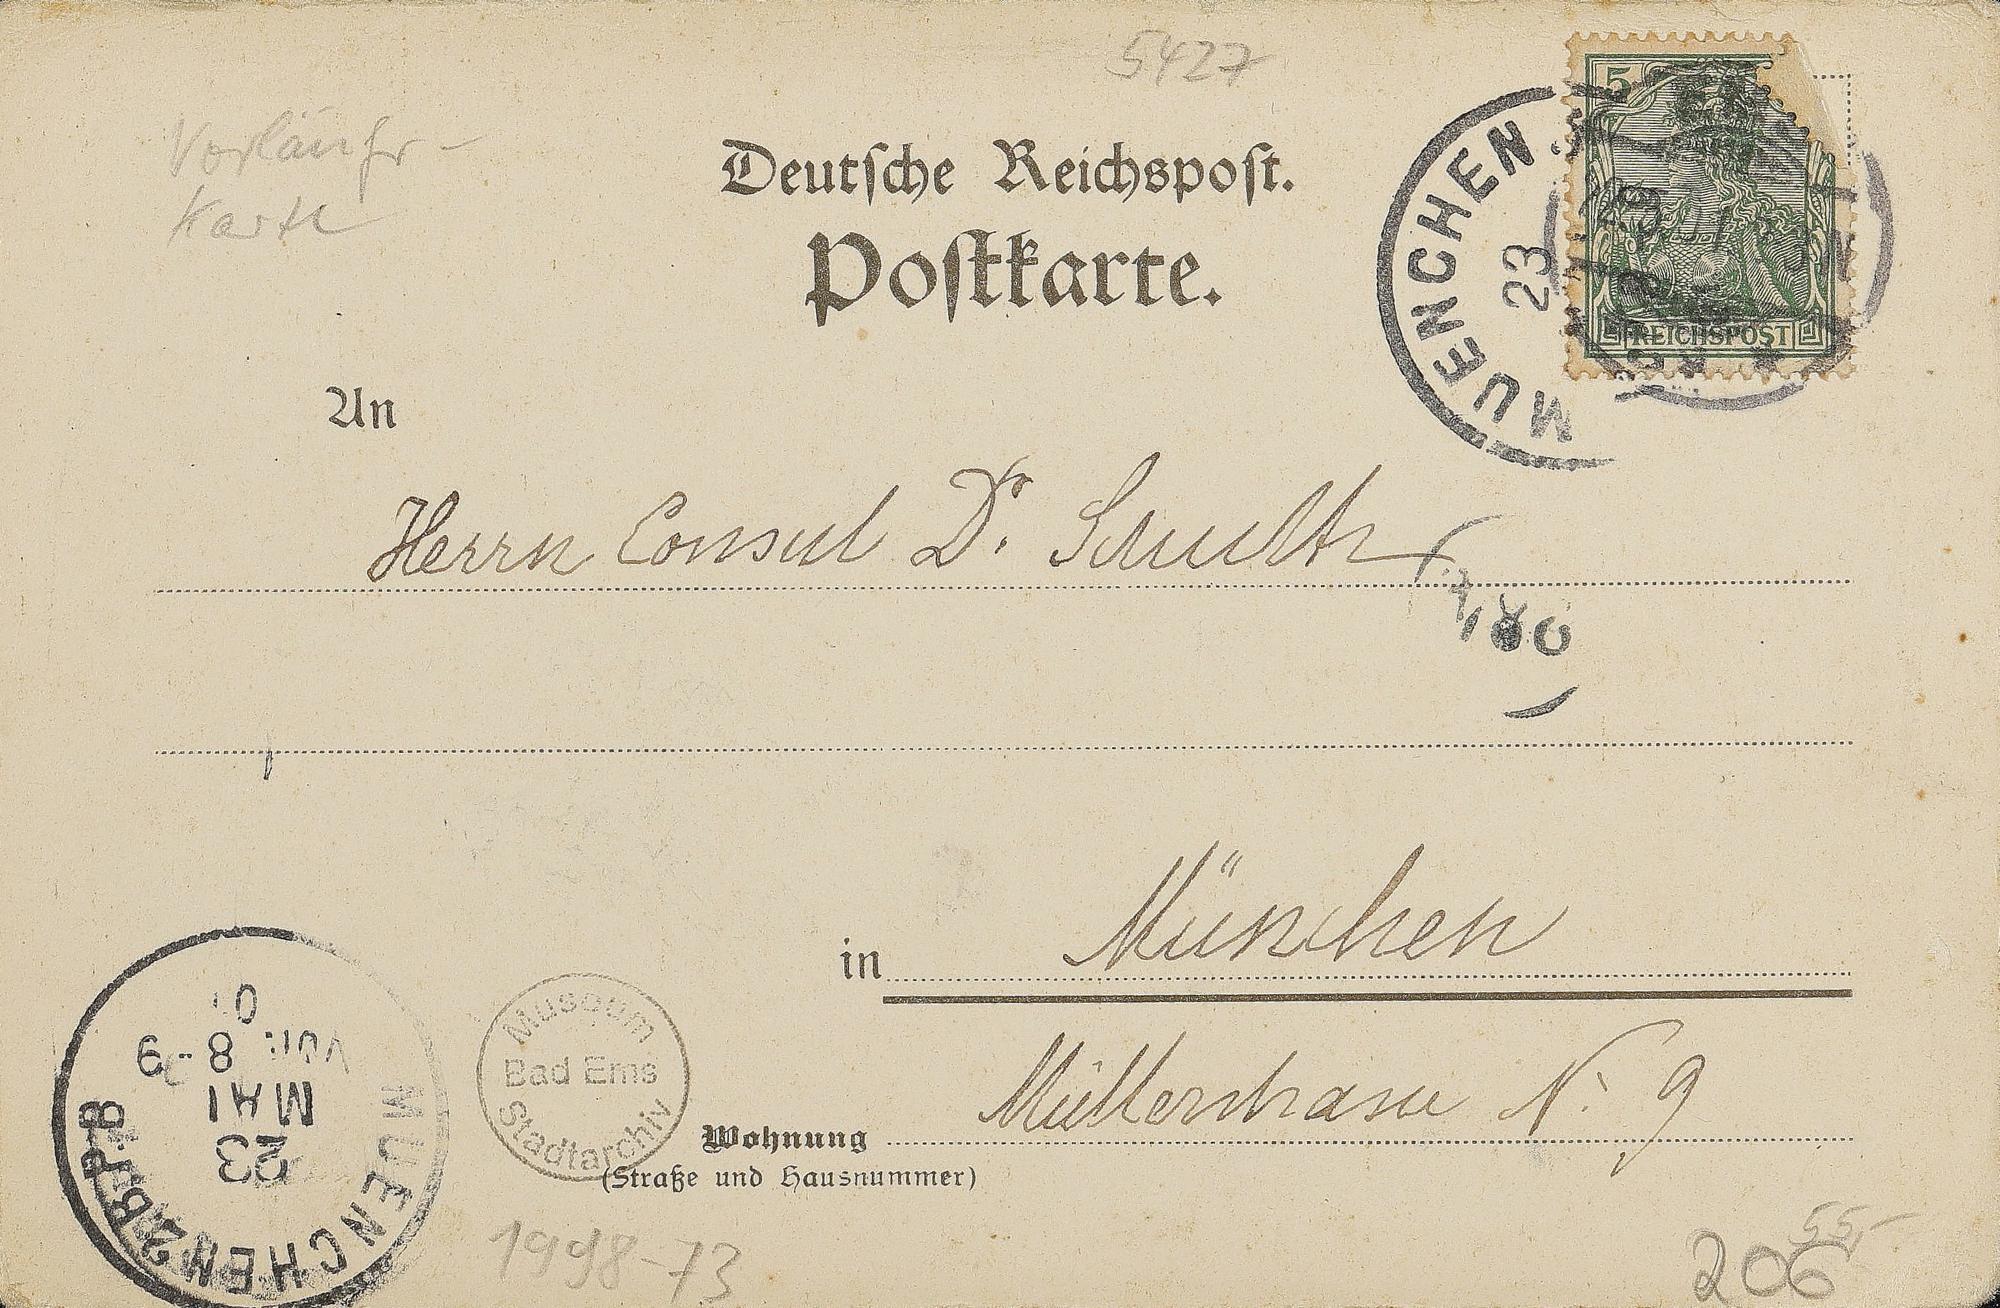 5427
Vorläufer-
Karte
Deutsche Reichspost.
Postkarte.
5
REICHSPOST
MUENCHEN
23
An
Herrn Consul Dr. Schultz
in München
Müllerstrasse N. 9
Wohnung
(Straße und Hausnummer)
MUENCHEN 2 B.P. 8
23
MAI
Vor. 8-9
01
Museum
Bad Ems
Stadtarchiv
1998-73
55,-
206